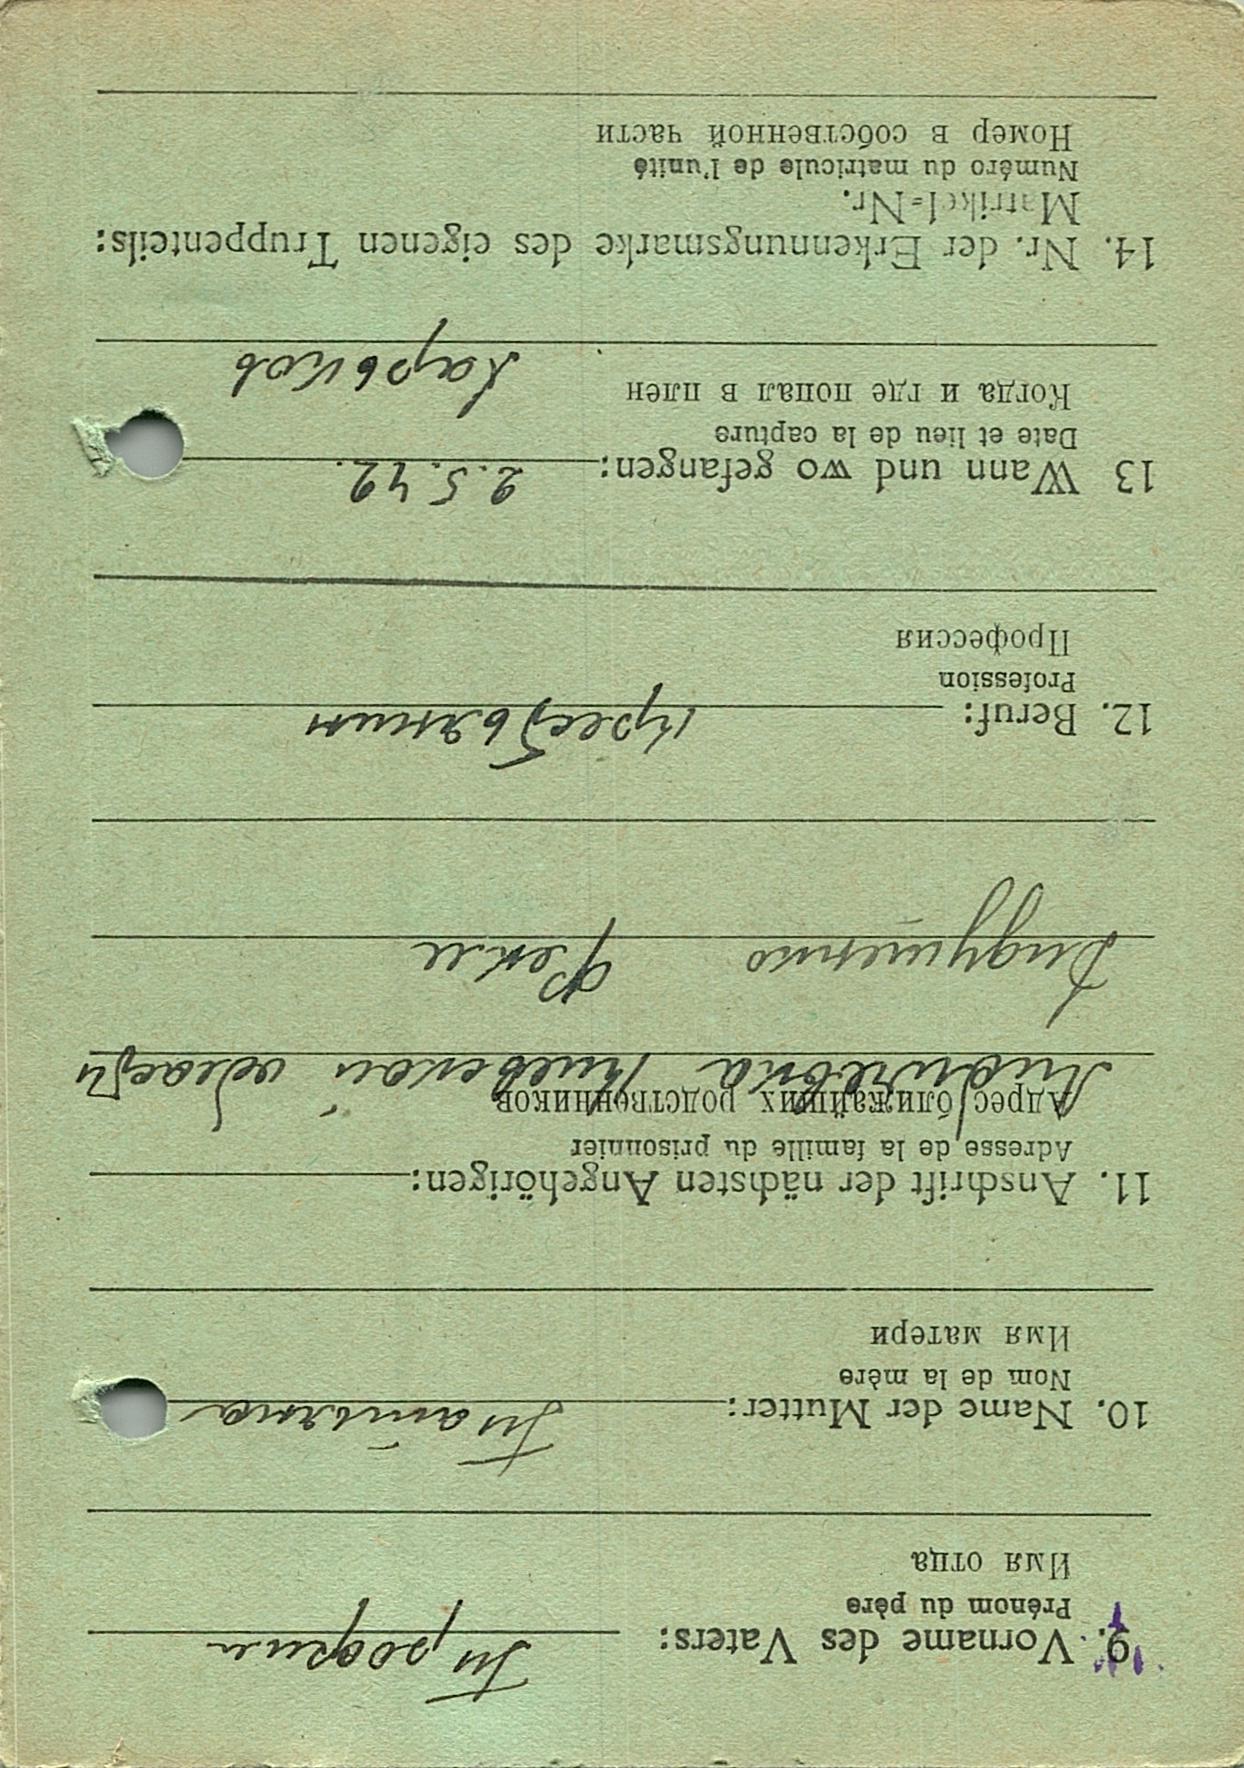 9. Vorname des Vaters: Трофим
Prénom du père
Имя отца
10. Name der Mutter: Татьяна
Nom de la mère
Имя матери
11. Anschrift der nächsten Angehörigen:
Adresse de la famille du prisonnier
Адрес ближайших родственников
Киевской област
Дидушенко Фекли
12. Beruf: крестьянин
Profession
Профессия
13 Wann und wo gefangen: 2.5.42.
Date et lieu de la capture
Когда и где попал в плен
Харьков
14. Nr. der Erkennungsmarke des eigenen Truppenteils:
Matrikel=Nr.
Numéro du matricule de l'unité
Номер в собственной части